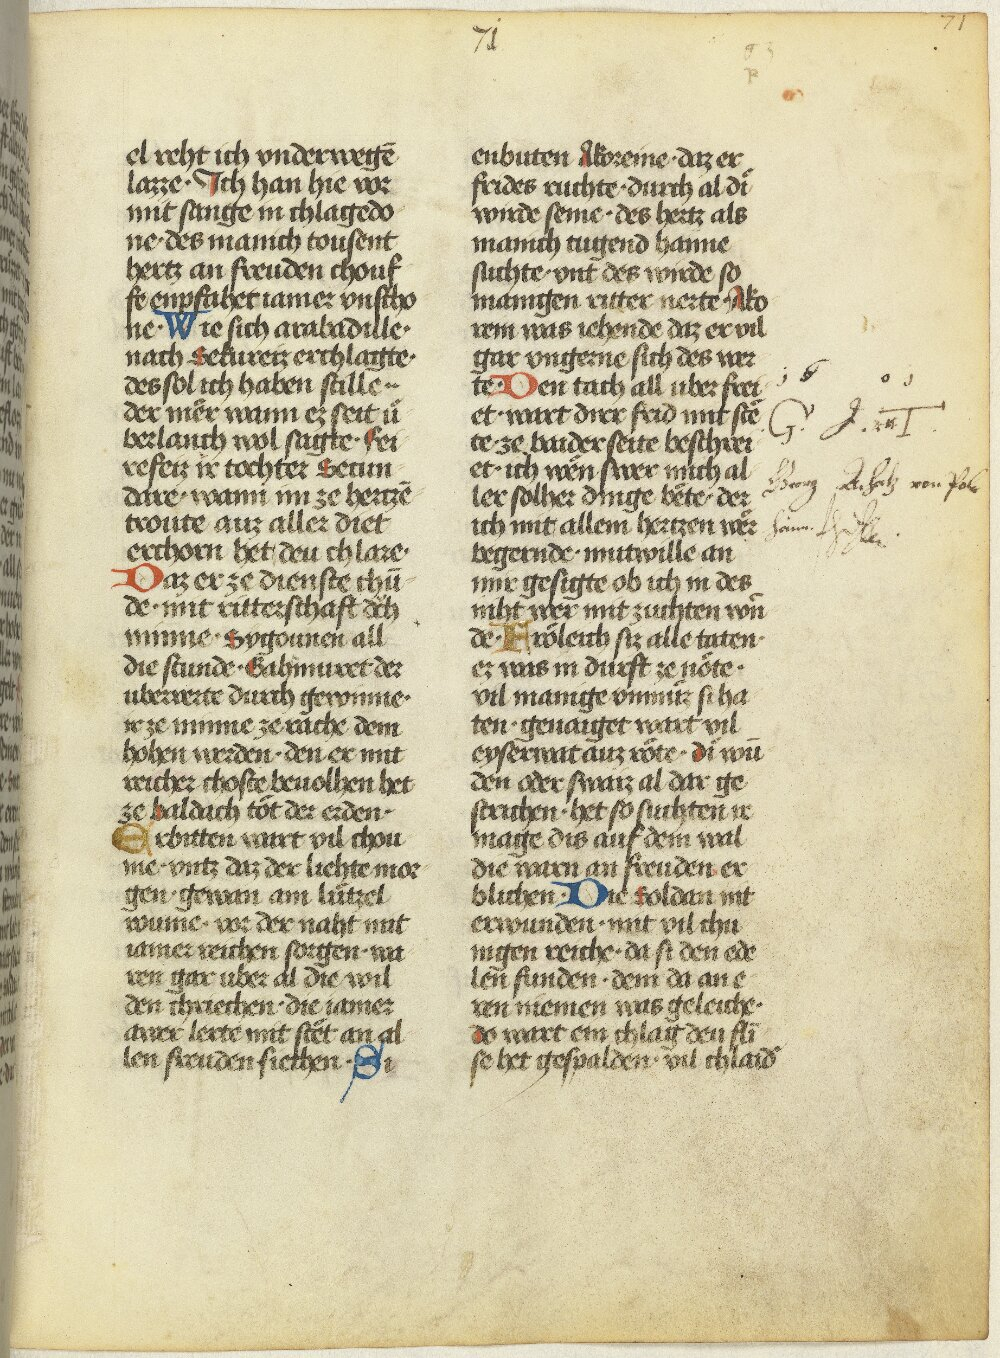 71
71
el reht ich vnderwegē
lazze · Ich han hie vor
mit sange in chlagedo
ne · des manich tousent
hertz an freuden chouf
fe enpfahet iamer vnscho
ne · Wie sich arabadille ·
nach Sekureiz erchlagte ·
des sol ich haben stille ·
der mer wann ez seit ů
berlauch wol sagte · Sei
reseiz ir tochter Secun
dare · wann im ze hertzē
troute auz aller diet
erchorn het deu chlare ·
Daz er ze dienste chū
de · mit ritterschaft dch
minne · Sygounen all
die stunde · Gahmuret der
uberverte durch gewinne ·
ir ze minne ze rache dem
hohen werden · den er mit
reicher choste beuolhen het
ze baldach tôt der erden ·
Erbitten wart vil chou
me · vntz daz der liehte mor
gen · gewan am lützel
roume · vor der naht mit
iamer reichen sorgen · wa
ren gar uber al die wil
den chriechen · die iamer
awer lerte mit stêt an al
len freuden siechen · Si
enbuten Akoreine · daz er
frides ruchte · durch al di
wirde seine · des hertz als
manich tugend hanne
suchte · vnt des wirde so
manigen ritter nerte · Ako
rein was iehende daz er vil
gar vngerne sich des wer
te · Den tach all uber frei
et · wart dirr frid mit stê
te · ze baider seite beschrei
et · ich wên swer mich al
ler solher dinge bête · der
ich mit allem hertzen wêr
begernde · mutwille an
mir gesigte ob ich in des
niht wer mit zuchten wŵ
de · Frôleich siz alle taten ·
ez was in durft ze nôte ·
vil manige vnmuz si ha
ten · genaiget wart vil
eyserwat auz rôte · di wū
den oder swaz al dar ge
strichen · het so suchten ir
mage dis auf dem wal
die warn an freuden er
blichen · Die Soldan nit
erwunden · mit vil chu
nigen reiche · da si den ede
len funden · dem da an e
ren niemen was geleiche ·
do wart ein chlag deu fli
se het gespalden · vil chlaid
G.
Georg von